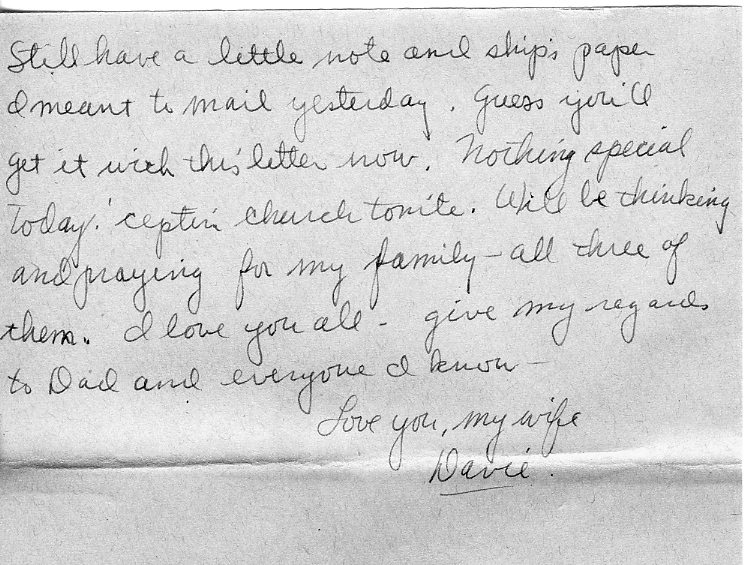 Still have a little note and ship's paper
I meant to mail yesterday. Guess you'll
get it with this letter now. Nothing special
Today. 'ceptin church tonite. Will be thinking
and praying for my family - all three of
them. I love you all - give my regards
to Dad and everyone I know -
Love you, my wife
Davie.